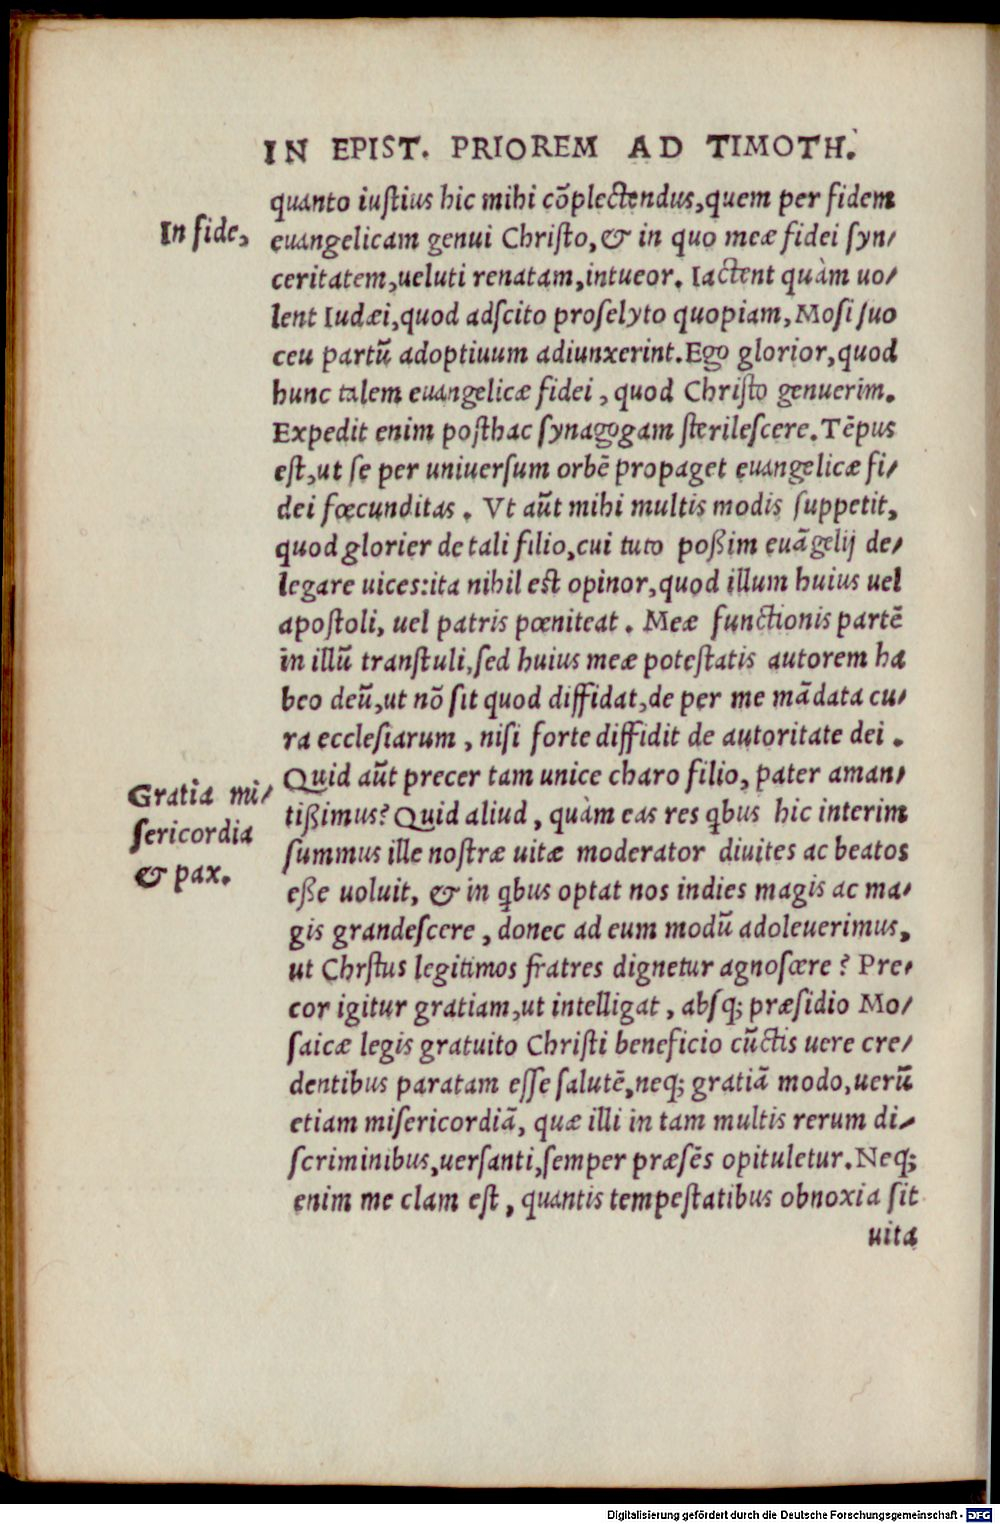 IN EPIST. PRIOREM AD TIMOTH.
quanto iustius hic mihi cõplectendus, quem per fidem
In fide,
euangelicam genui Christo, & in quo meæ fidei syn/
ceritatem, ueluti renatam, intueor. Iactent quàm uo/
lent Iudæi, quod adscito proselyto quopiam, Mosi suo
ceu partũ adoptiuum adiunxerint. Ego glorior, quod
hunc talem euangelicæ fidei, quod Christo genuerim.
Expedit enim posthac synagogam sterilescere. Tẽpus
est, ut se per uniuersum orbẽ propaget euangelicæ fi/
dei fœcunditas. Vt aũt mihi multis modis suppetit,
quod glorier de tali filio, cui tuto poßim euãgelij de/
legare uices: ita nihil est opinor, quod illum huius uel
apostoli, uel patris pœniteat. Meæ functionis partẽ
in illũ transtuli, sed huius meæ potestatis autorem ha
beo deũ, ut nõ sit quod diffidat, de per me mãdata cu/
ra ecclesiarum, nisi forte diffidit de autoritate dei.
Quid aũt precer tam unice charo filio, pater aman/
Gratia mi/
sericordia
& pax.
tißimus? Quid aliud, quàm eas res qbus hic interim
summus ille nostræ uitæ moderator diuites ac beatos
eße uoluit, & in qbus optat nos indies magis ac ma/
gis grandescere, donec ad eum modũ adoleuerimus,
ut Chrstus legitimos fratres dignetur agnoscere? Pre/
cor igitur gratiam, ut intelligat, absq; præsidio Mo/
saicæ legis gratuito Christi beneficio cũctis uere cre/
dentibus paratam esse salutẽ, neq; gratiã modo, uerũ
etiam misericordiã, quæ illi in tam multis rerum di/
scriminibus, uersanti, semper præsẽs opituletur. Neq;
enim me clam est, quantis tempestatibus obnoxia sit
uita
Digitalisierung gefördert durch die Deutsche Forschungsgemeinschaft - DFG